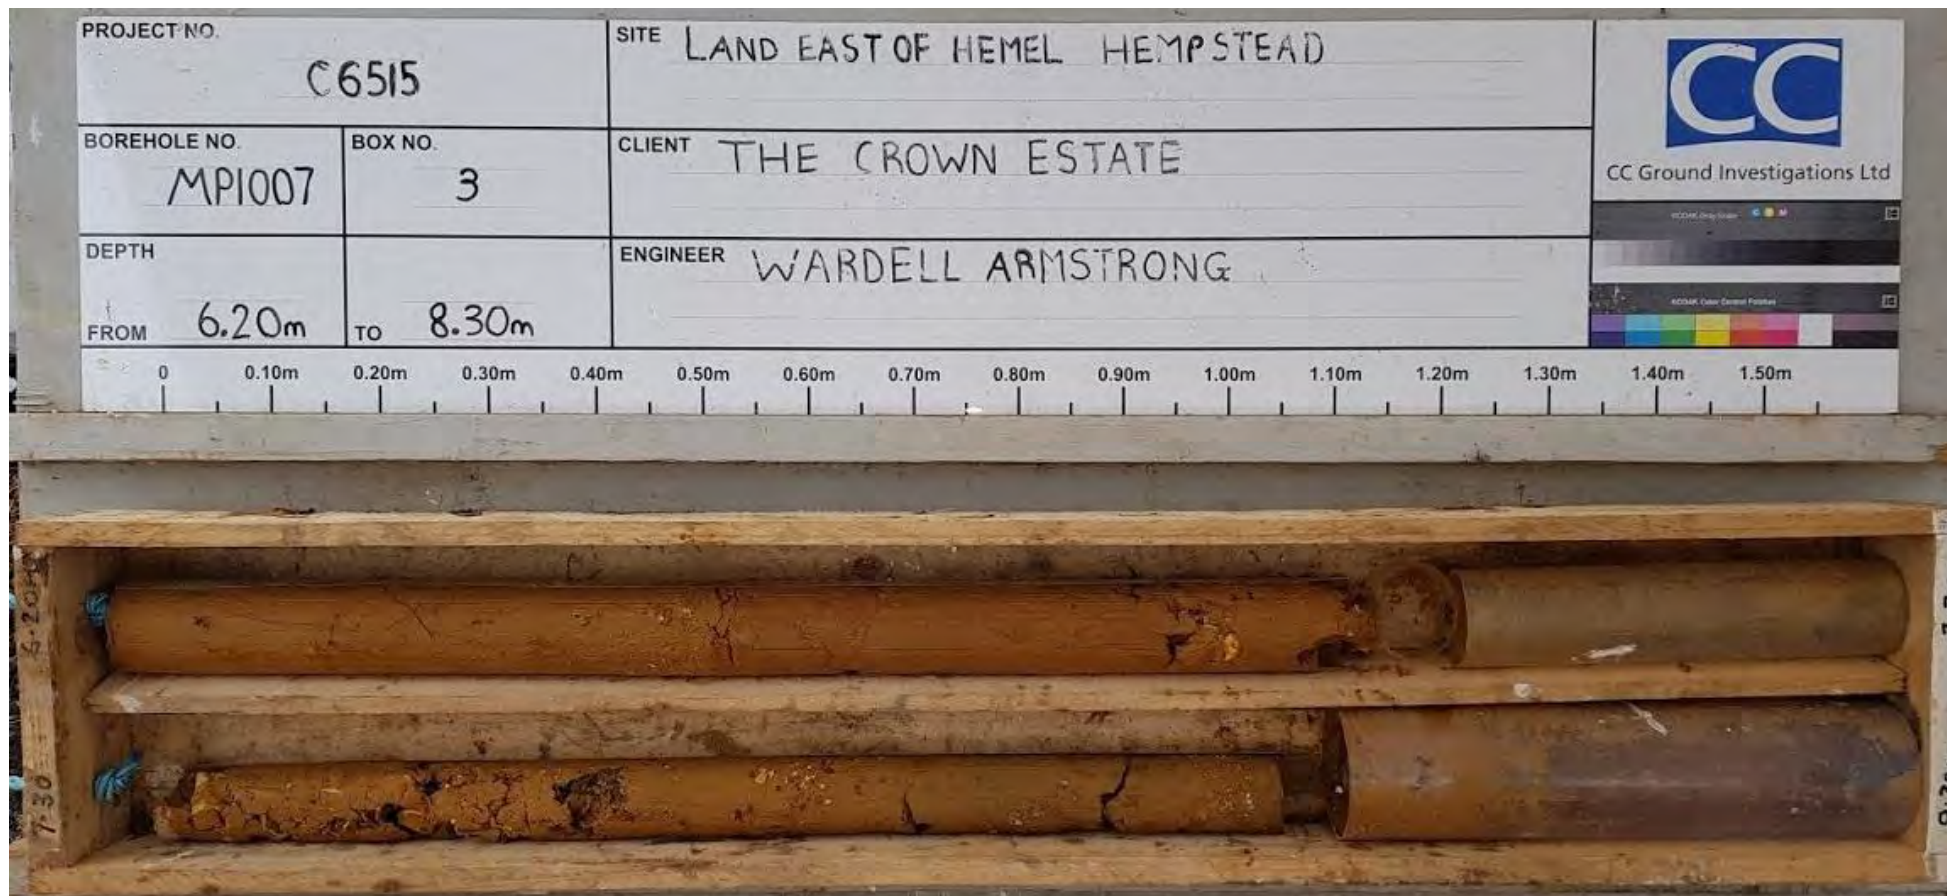 PROJECT NO.
C6515
SITE LAND EAST OF HEMEL HEMPSTEAD
BOREHOLE NO.
MP1007
BOX NO.
3
CLIENT THE CROWN ESTATE
DEPTH
FROM 6.20m TO 8.30m
ENGINEER WARDELL ARMSTRONG
CC
CC Ground Investigations Ltd
KODAK Gray Scale C Y M
KODAK Color Control Patches
0 0.10m 0.20m 0.30m 0.40m 0.50m 0.60m 0.70m 0.80m 0.90m 1.00m 1.10m 1.20m 1.30m 1.40m 1.50m
6.20
7.30